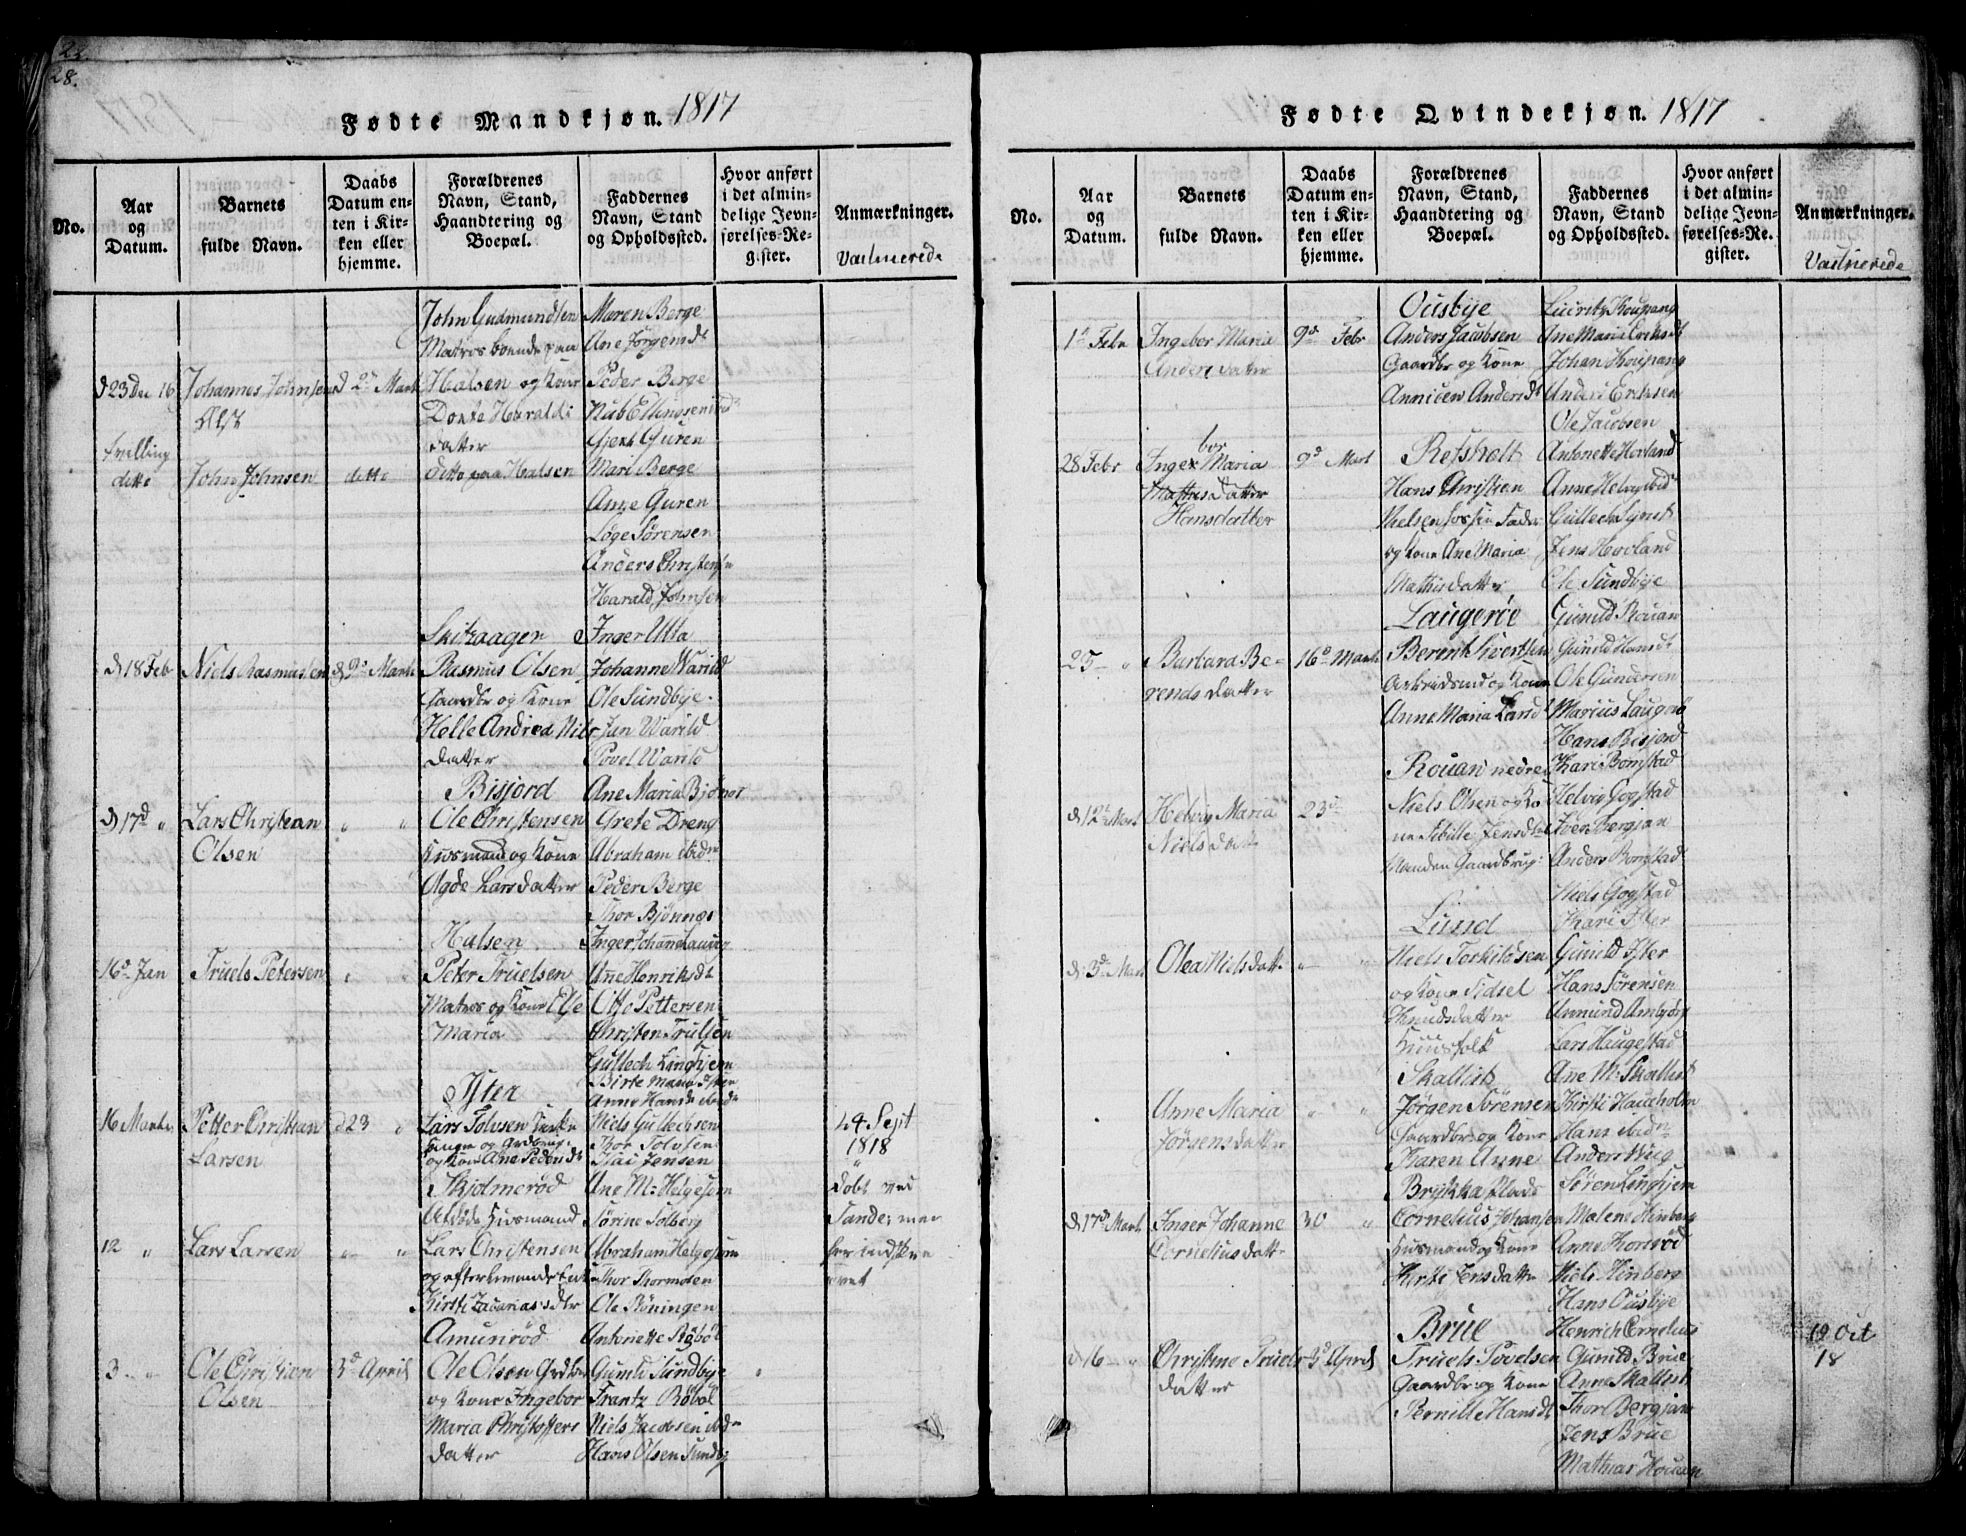 22.
28.
Fødte Mandkjøn. 1817
No.
Aar
og
Datum.
Barnets
fulde Navn.
Daabs
Datum en-
ten i Kir-
ken eller
hjemme.
Forældrenes
Navn, Stand,
Haandtering og
Boepæl.
Faddernes
Navn, Stand
og Opholdssted.
Hvor anført
i det almin-
delige Jevn-
førelses-Re-
gister.
Anmærkninger.
Vaccinerede
d 23 Dec 16
Johannes Johnsen
d 2 Mart
John Gudmundsen
Matros boende paa
Halsen og Kone
Dorte Haralds
datter
Maren Berge
Ane Jørgensdt
Peder Berge
Gjert Guren
tvilling
ditto
John Johnsen
ditto
ditto paa Halsen
Mari Berge
Anne Guren
Løge Sørensen
Anders Christensen
Harald Johnsen
d 18 Feb
Niels Rasmussen
d 9 Marts
Skiraager
Rasmus Olsen
Gaardbr og Kone
Helle Andrea Niels
datter
Inger Utta
Johanne Warild
Ole Sundbye
Jan Warild
Povel Warild
d 17d "
Lars Christian
Olsen
" "
Bisjord
Ole Christensen
Husmand og Kone
Lars datter
Ane Maria Bjønnes
Grete Dreng
Abraham ibid
Peder Berge
Thor Bjønnes
16 Jan
Truels Petersen
" "
Halsen
Peter Truelsen
Matros og Kone Else
Maria
Inger Johanne
Anne Henriksdt
Otto Pettersen
Christen Trulsen
Gullech Linghjem
16 Marts
Petter Christian
Larsen
d 23 "
Ister
Lars Tolvsen
og Kone Ane Pedersdt
Birte Maria Ister
Anne Hansdt ibid
Niels Gullechsen
Thor Tolvsen
Kai Jensen
24 Sept
1818
12 "
Lars Larsen
" "
Skjolmerød
Husmand
Lars Christensen
og efterlevende Enke
Kirsti Zacharias dtr
Ane M: Helgesøn
Sørine Solberg
Abraham Helgesøn
Thor Thormoden
Ole Røningen
Døbt ved
Sande, men
her indskre
vet
3 "
Ole Christian
Olsen
3d April
Amunrød
Ole Olsen Grdbr
og Kone Ingebor
Maria Christoffers
datter
Antonette Røbøl
Gunild Sundbye
Frantz Røbøl
Niels Jacobsen ibd
Hans Olsen Sundby
Fødte Qvindekjøn. 1817
No.
Aar
og
Datum.
Barnets
fulde Navn.
Daabs
Datum en-
ten i Kir-
ken eller
hjemme.
Forældrenes
Navn, Stand,
Haandtering og
Boepæl.
Faddernes
Navn, Stand
og Opholdssted.
Hvor anført
i det almin-
delige Jevn-
førelses-Re-
gister.
Anmærkninger.
Vaccinerede
1 Febr
Ingebor Maria
Anders datter
9d Febr
Ousbye
Anders Jacobsen
Gaardbr og Kone
Annicen Andersdt
Ane Marie Eriksdt
Johan Koupang
Anders Eriksen
Ole Jacobsen
28 Febr
bor
Inger Maria
Mathis datter
Hansdatter
9d Mart
Refsholt
Hans Christian
Nielsen
og Kone Ane Maria
Mathisdatter
Antonette Hovland
Anne Helvig ibid
Jens Hovland
Ole Sundbye
25 "
Barbara Be-
rends datter
16 Marts
Laugerøe
Berent Sivertsen
Arbeidsmd og Kone
Anne Maria Larsdt
Gunild Rouan
Gunild Hansdt
Ole Gundersen
Marius Laugerø
Hans Bisjord
d 12 Mart
Helvig Maria
Niels datt
23d
Rouan nedre
Niels Olsen og Ko
ne Sibille Jensdtr
Manden Gaardbrug:
Kari Bomstad
Helvig Gogstad
Iver Bergan
Anders Bomstad
Niels Gogstad
d 3d Mart
Olea Niels datt
" "
Lund
Niels Torkildsen
og Kone Sidsel
Knudsdatter
Huusfolk
Kari Ister
Gunild Ister
Hans Sørensen
Lars Haugestad
Anne Maria
Jørgens datter
" "
Skallist
Jørgen Sørensen
Gaardbr og Kone
Karen Anne
Ane M: Skallist
Kirsti Haucholm
Hans ibid
Søren Linghjem
d 17d Mart
Inger Johanne
Cornelius datt
30 "
Brykka Plads
Cornelius Johansen
Husmand og Kone
Kirsti Jensdatter
Malene Hinberg
Anne Thorsrød
Niels Hinberg
Hans Ousbye
d 16 "
Christine Truels
datter
3d April
Brue
Truels Povelsen
Gaardbr og Kone
Pernille Hansdt
Henrich Cornelius
Gunild Brue
Anne Skallist
Thor Bergan
Jens Brue
Mathias Houan
19 Oct
18